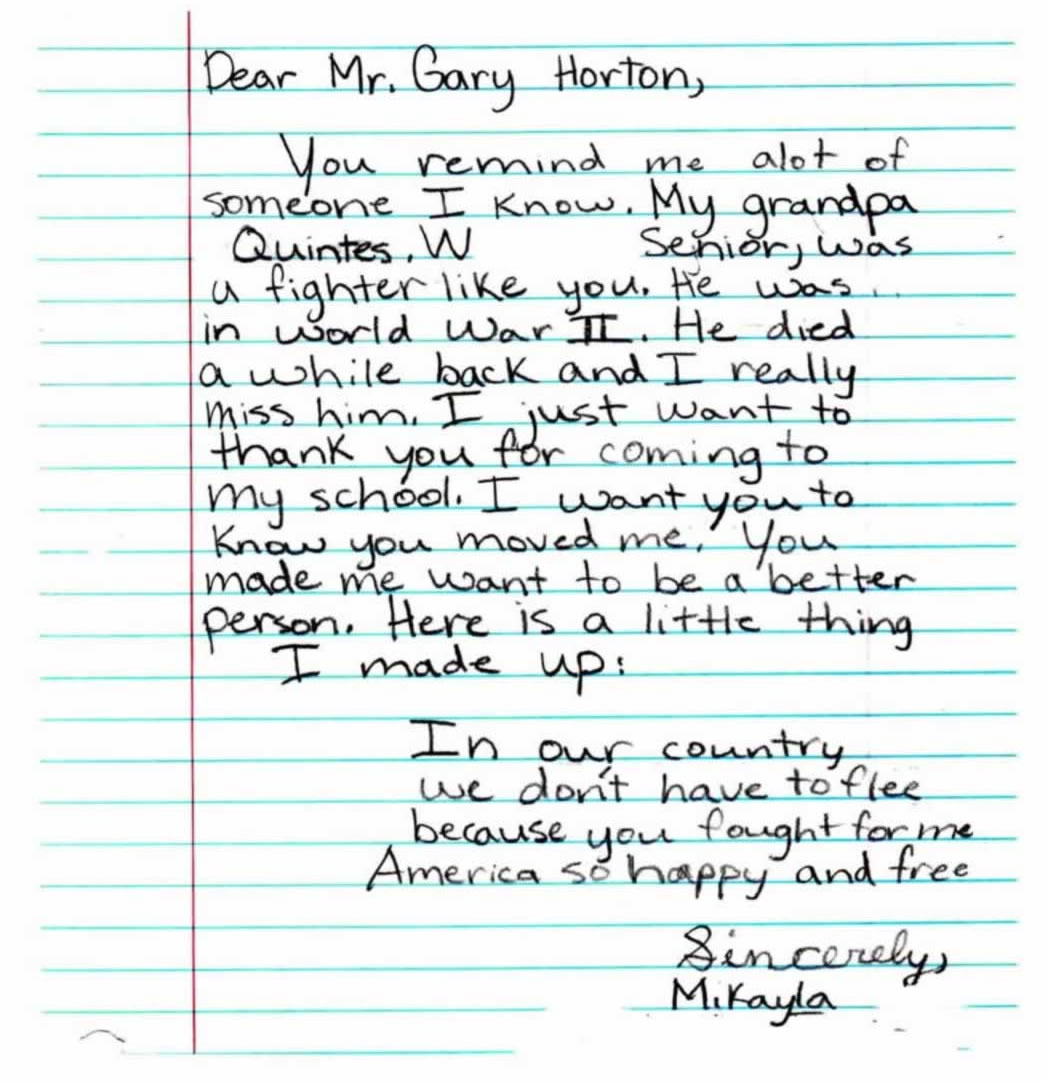 Dear Mr. Gary Horton,
You remind me alot of
someone I know. My grandpa
Quintes. W Senior, was
a fighter like you. He was
in world war II. He died
a while back and I really
miss him. I just want to
thank you for coming to
my school. I want you to
know you moved me. You
made me want to be a better
person. Here is a little thing
I made up:
In our country
we don't have to flee
because you fought for me
America so happy and free
Sincerely,
Mikayla